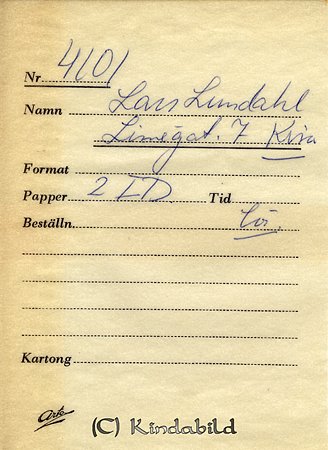 Nr 4101
Namn Lars Lundahl
Linnégat. 7 Kisa
Format
Papper 2 ID Tid
Beställn.
Kartong
Ark
(C) Kindabild